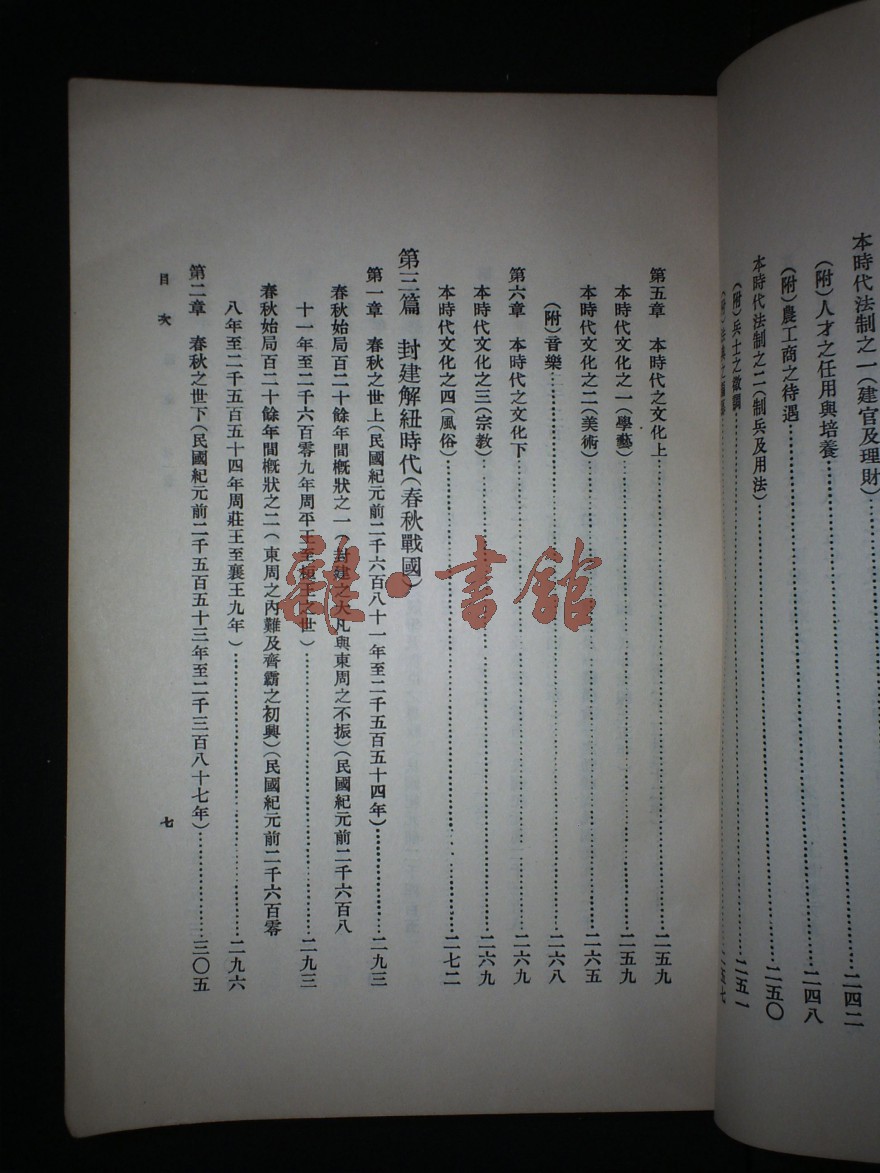 本時代法制之一(建官及理財)……二四二
(附)人才之任用與培養……二四八
(附)農工商之待遇……二五〇
本時代法制之二(制兵及用法)……二五一
(附)兵士之徵調
第五章 本時代之文化上……二五九
本時代文化之一(學藝)……二五九
本時代文化之二(美術)……二六五
(附)音樂……二六八
第六章 本時代之文化下……二六九
本時代文化之三(宗教)……二六九
本時代文化之四(風俗)……二七二
第三篇 封建解紐時代(春秋戰國)
第一章 春秋之世上(民國紀元前二千六百八十一年至二千五百五十四年)……二九三
春秋始局百二十餘年間概狀之一(封建之大凡與東周之不振)(民國紀元前二千六百八
十一年至二千六百零九年周平王至桓王之世)……二九三
春秋始局百二十餘年間概狀之二(東周之內難及齊霸之初興)(民國紀元前二千六百零
八年至二千五百五十四年周莊王至襄王九年)……二九六
第二章 春秋之世下(民國紀元前二千五百五十三年至二千三百八十七年)……三〇五
目次
七
雜·書館